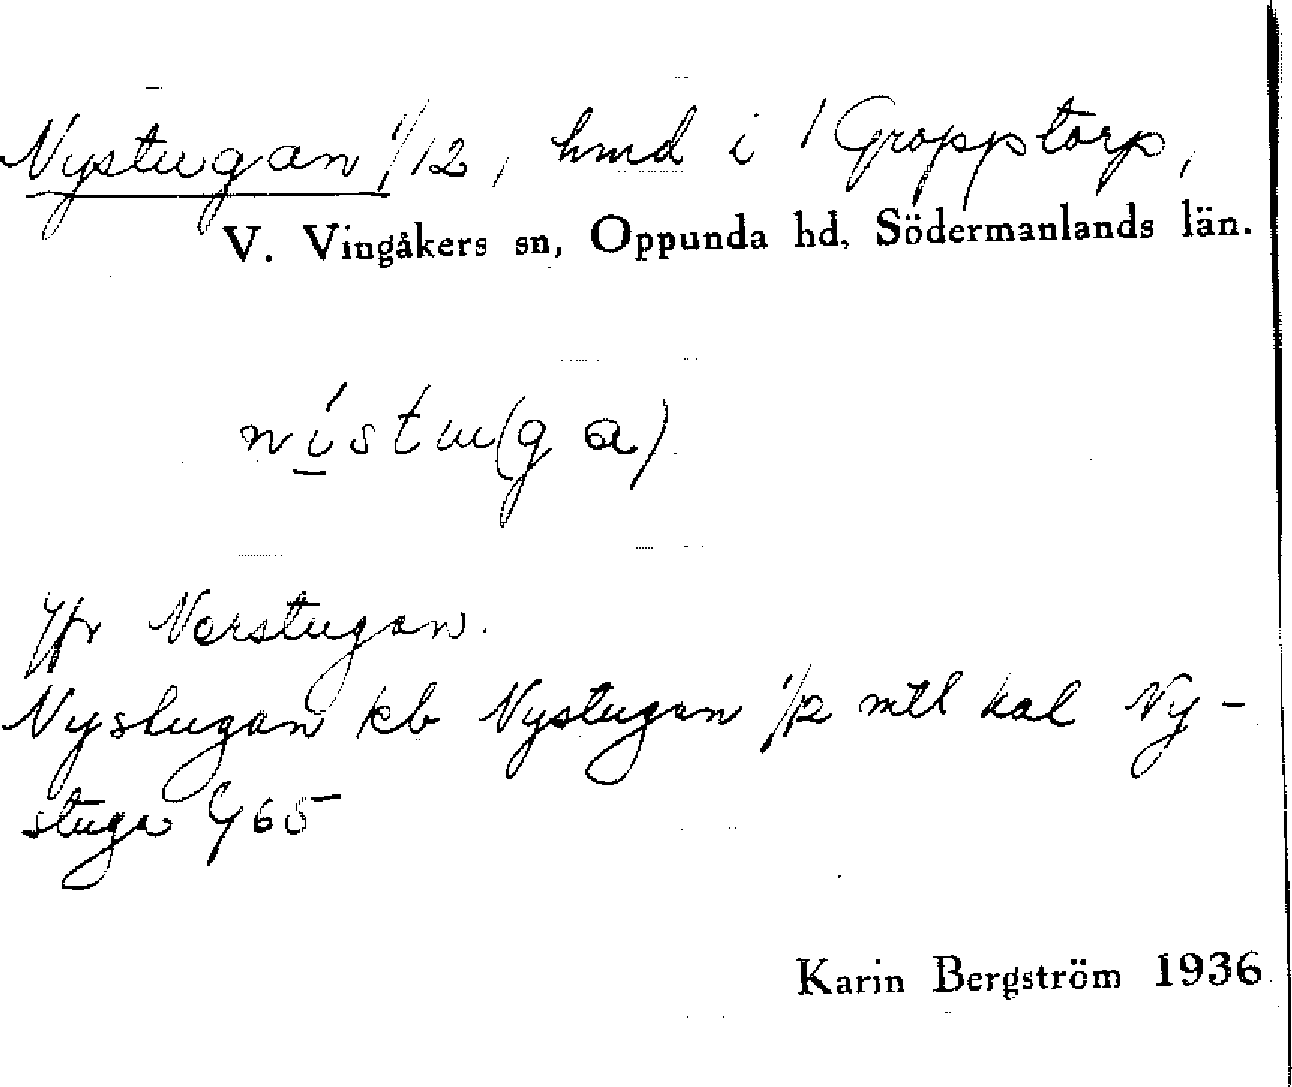 Nystugan 1/12, hmd i 1 Gropptorp,
V. Vingåkers sn, Oppunda hd, Södermanlands län.
Jfr Norstugan.
Nystugan kb Nystugan 1/12 mtl kal Ny-
stuga Y65
Karin Bergström 1936